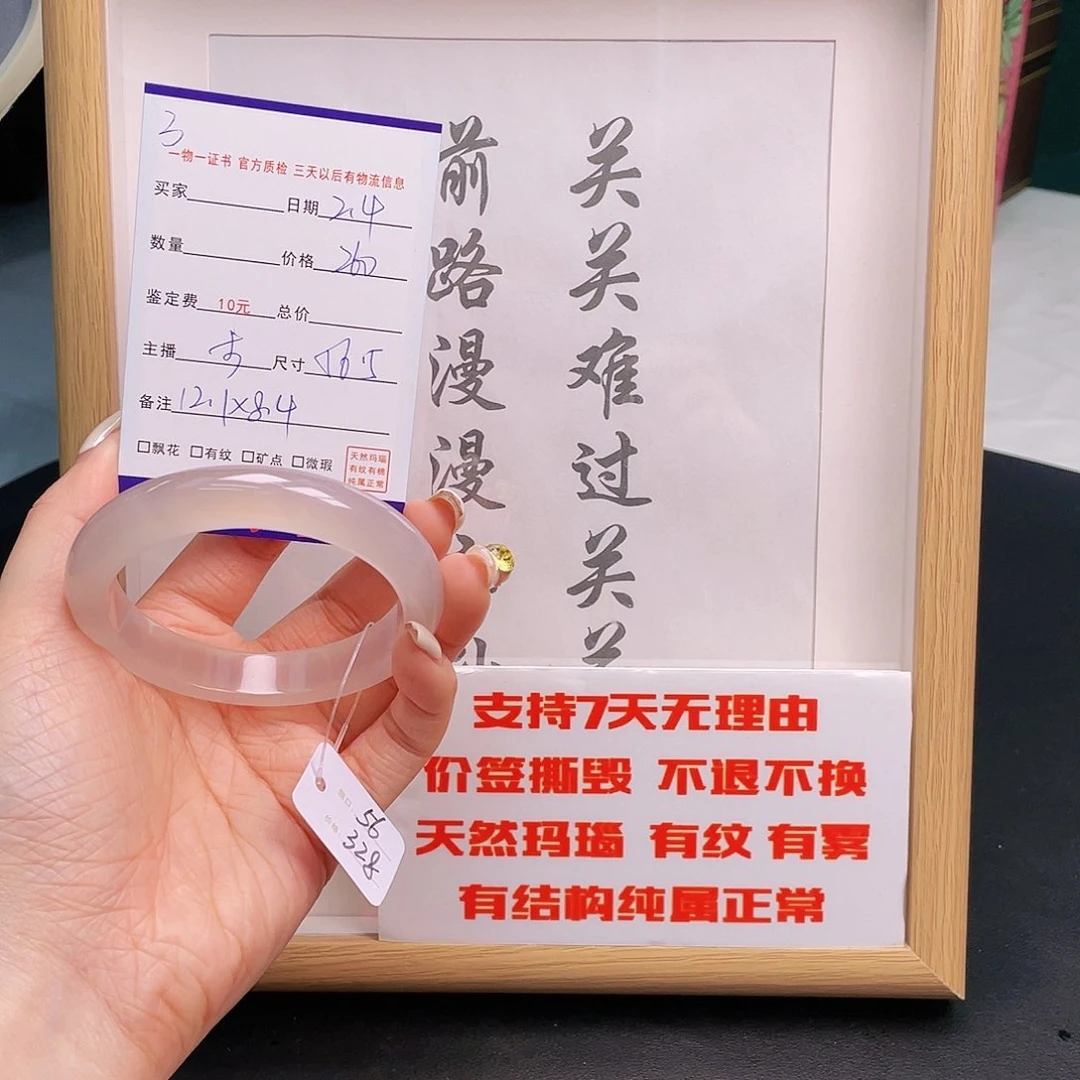 3
一物一证书 官方质检 三天以后有物流信息
买家 日期 2.4
数量 价格 260
鉴定费 10元 总价
主播 尺寸 56.5
备注 12.1×8.4
□飘花 □有纹 □矿点 □微瑕
天然玛瑙
有纹有棉
纯属正常
关关难过关
前路漫漫
圈口: 56
价格: 328
支持7天无理由
价签撕毁 不退不换
天然玛瑙 有纹 有雾
有结构纯属正常